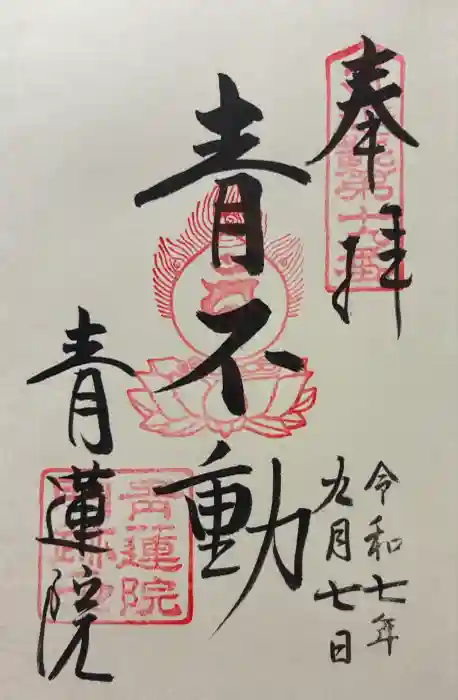 奉拝
青不動
令和七年
九月七日
青蓮院
青蓮院